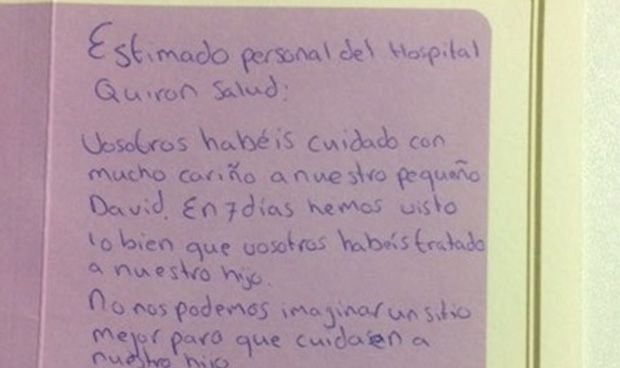 Estimado personal del Hospital
Quiron Salud:
Vosotros habéis cuidado con
mucho cariño a nuestro pequeño
David. En 7 días hemos visto
lo bien que vosotros habeis tratado
a nuestro hijo.
No nos podemos imaginar un sitio
mejor para que cuidasen a
nuestro hijo